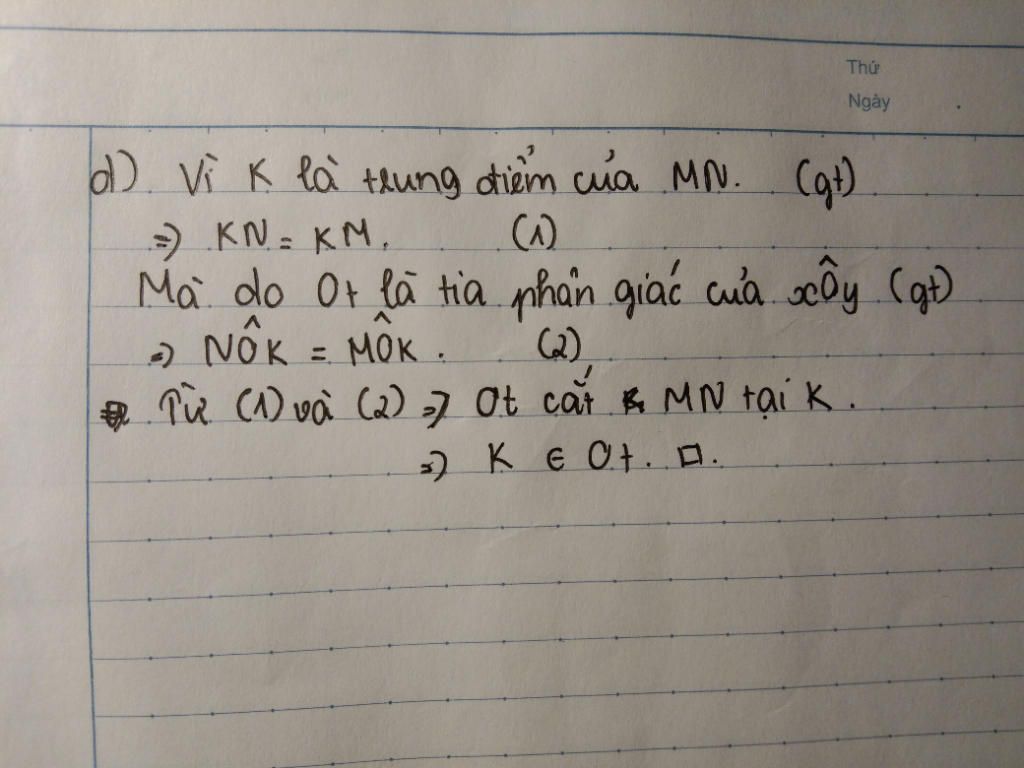 Thứ
Ngày
d) Vì K là trung điểm của MN. (gt)
=> KN = KM. (1)
Mà do Ot là tia phân giác của xÔy (gt)
=> NÔK = MÔK. (2)
Từ (1) và (2) => Ot cắt MN tại K.
=> K ∈ Ot. □.